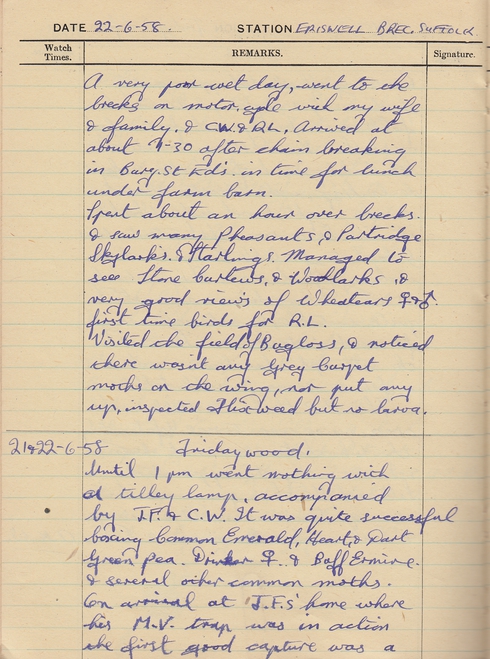 DATE 22-6-58. STATION ERISWELL BREC, SUFFOLK
Watch Times. REMARKS. Signature.
A very poor wet day, went to the
brecks on motor, cycle with my wife
& family. & C.W. & R.L. Arrived at
about 1-30 after chain breaking
in Bury. St Ed's. in time for lunch
under farm barn.
Spent about an hour over brecks.
& saw many Pheasants, & Partridge
Skylarks. & Starlings. Managed to
see Stone curlews, & Woodlarks, &
very good views of Wheatears ♀ & ♂.
first time birds for R.L.
Visited the field of Bugloss, & noticed
there wasn't any Grey Carpet
moths on the wing, nor put any
up, inspected Flixweed but no larva.
21&22-6-58 Fridaywood.
Until 1 pm went mothing with
a tilley lamp, accompanied
by J.F. & C.W. It was quite successful
boxing Common Emerald, Heart & Dart
Green Pea. Drinker ♀. & Buff Ermine.
& several other common moths.
On arrival at J.F.S' home where
his M.V. trap was in action
the first good capture was a